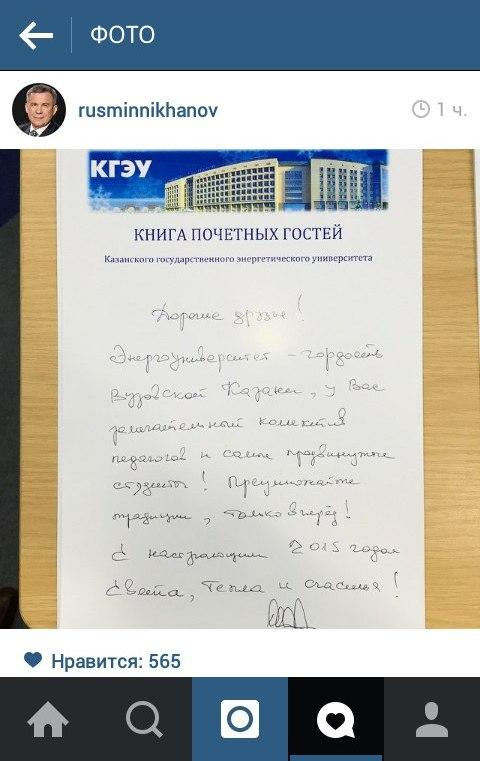 ФОТО
rusminnikhanov
1 ч.
КГЭУ
КНИГА ПОЧЕТНЫХ ГОСТЕЙ
Казанского государственного энергетического университета
Дорогие друзья!
Энергоуниверситет – гордость
Вузовской Казани, у Вас
замечательный колектив
педагогов и самые продвинутые
студенты! Преумножайте
традиции, только вперёд!
С наступающим 2015 годом
Света, Тепла и счастья!
Нравится: 565